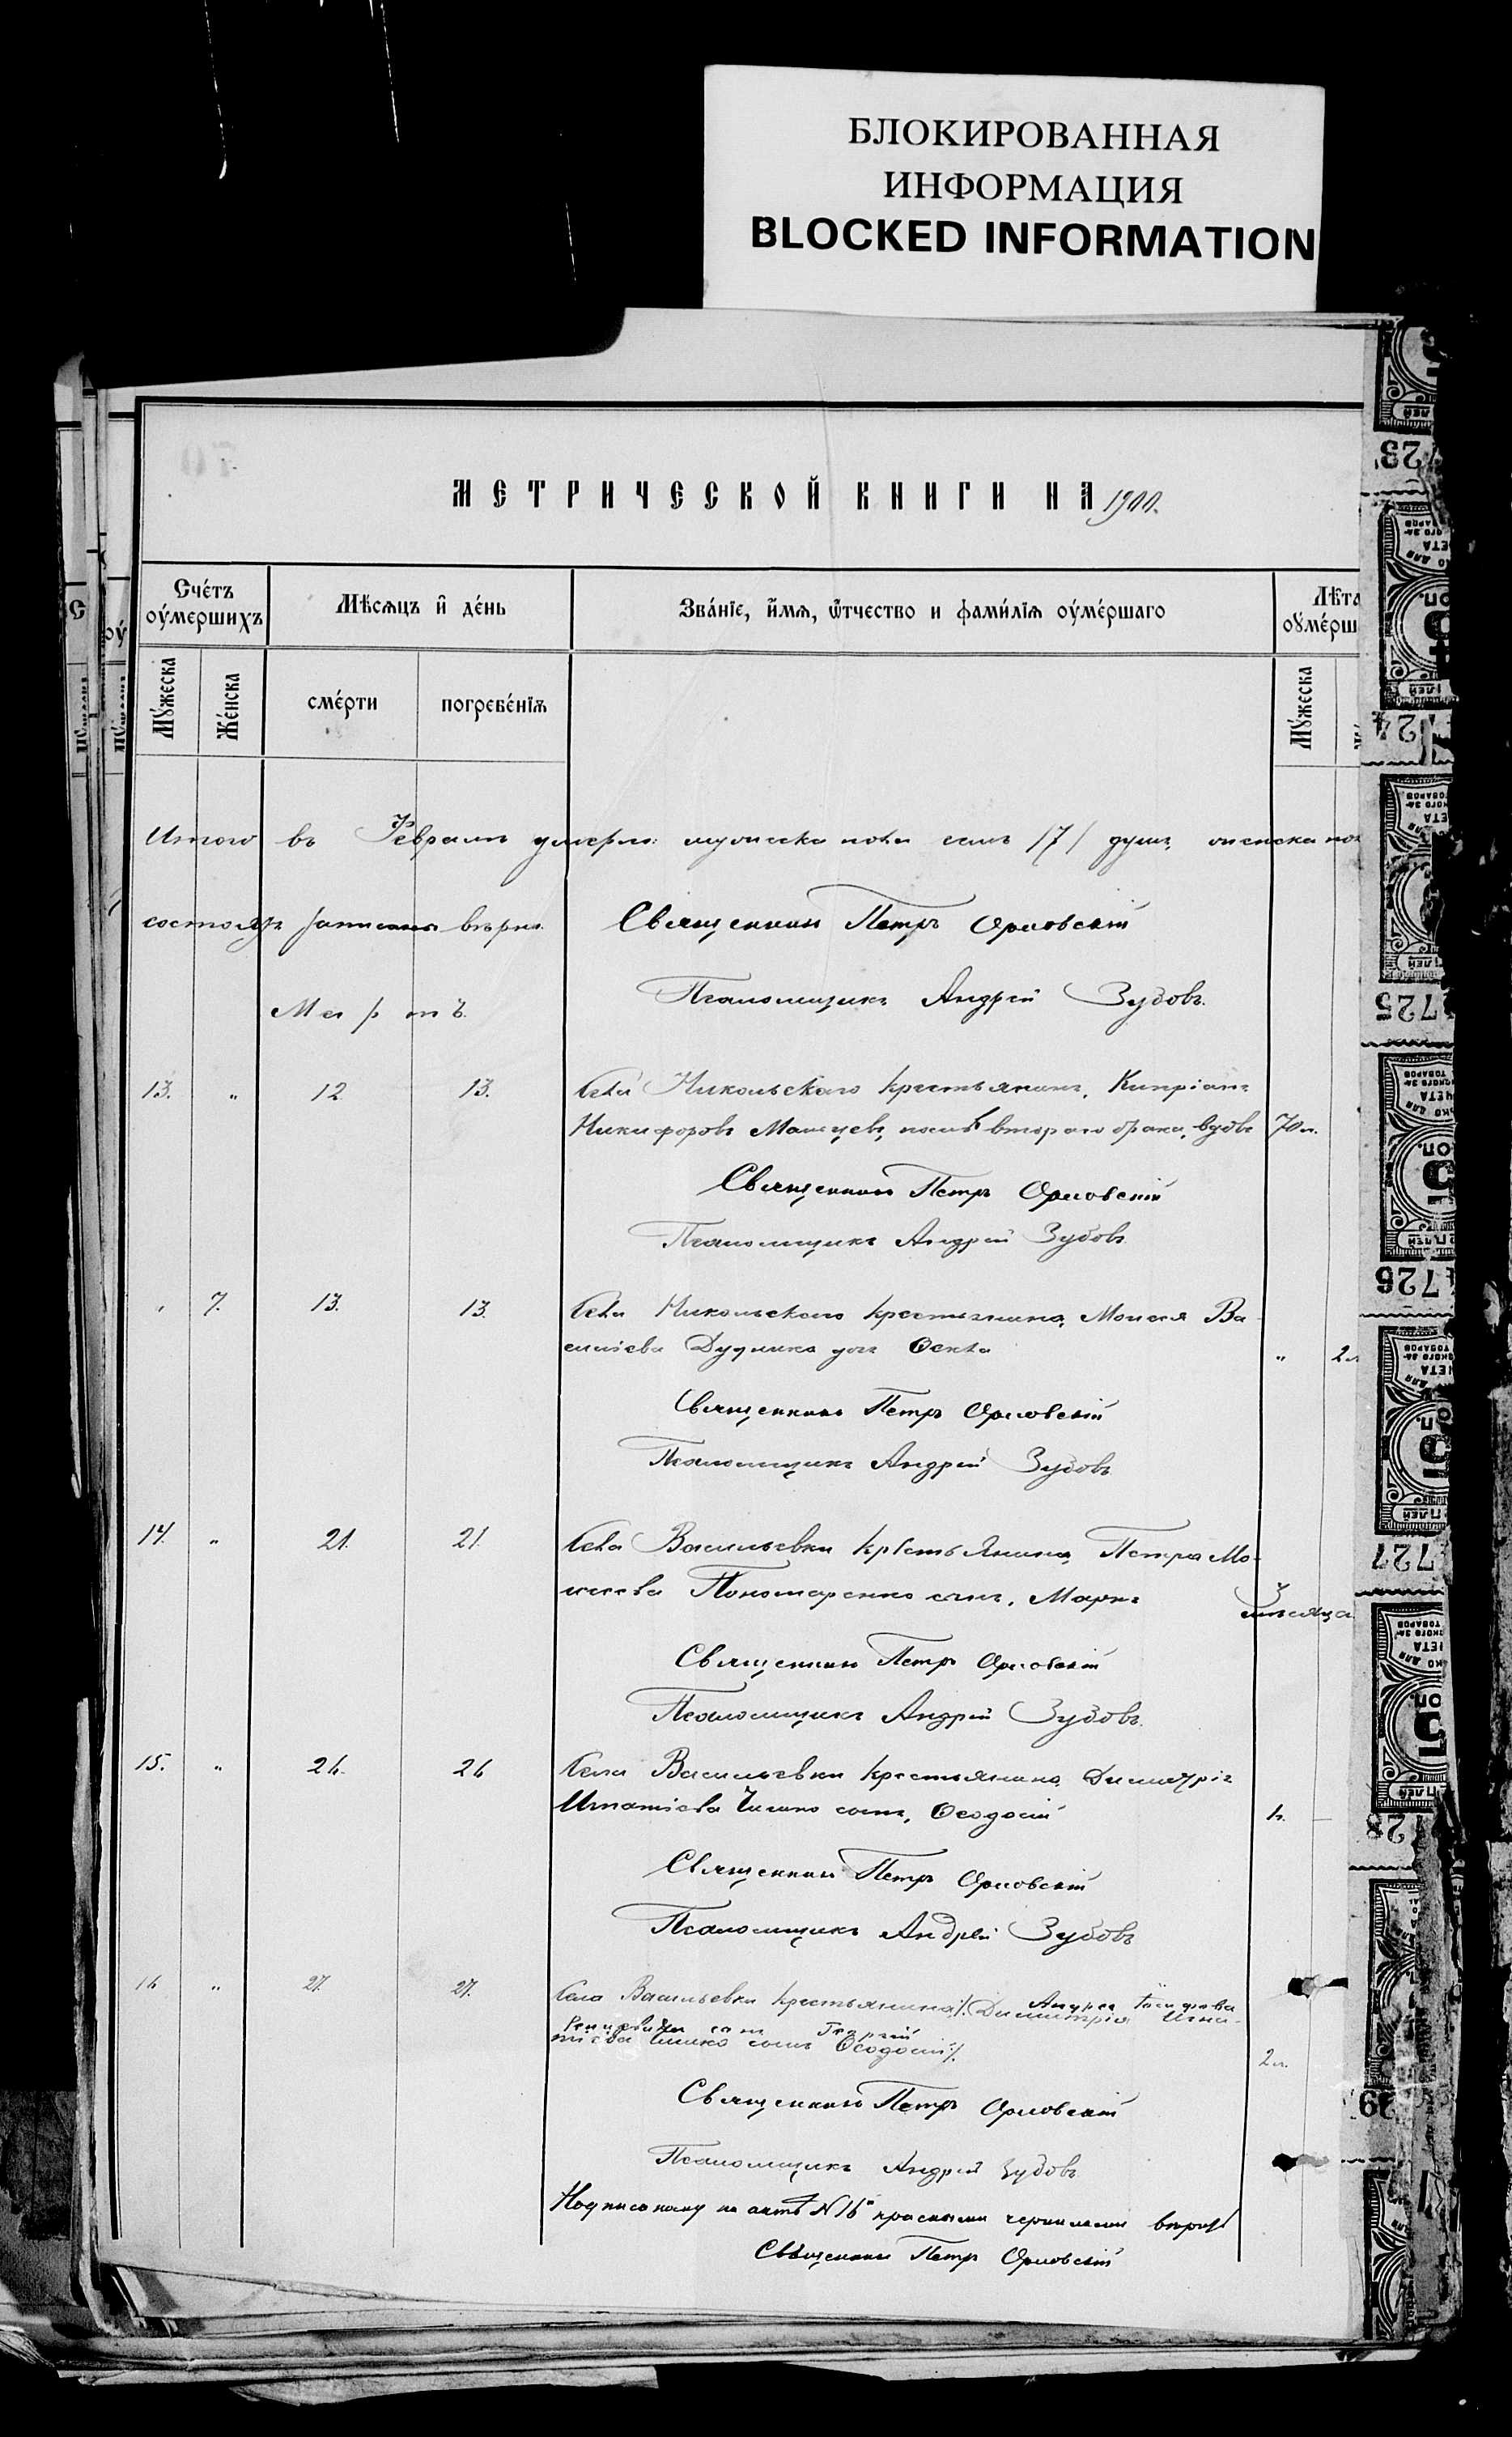 БЛОКИРОВАННАЯ
ИНФОРМАЦИЯ
BLOCKED INFORMATION
МЕТРИЧЕСКОЙ КНИГИ НА 1900.
Счéтъ оу́мершихъ
Мѣсѧцъ и҆ де́нь
Зва́нїе, и҆́мѧ, ѻ҆́тчество и фами́лїѧ оу́ме́ршаго
Лѣта оу́мерш
Му́жеска
Же́нска
сме́рти
погребе́нїѧ
Му́жеска
Итого въ Февралѣ умерло: мужеска пола семь /7/ душъ, женска пол
состоять записаны вѣрно. Священникъ Петръ Орловскій
Псаломщикъ Андрей Зубовъ.
Мартъ.
13. " 12 13. Села Никольскаго крестьянинъ, Кипріанъ
Никифоровъ послѣ второго брака, вдовъ 70 л.
Священникъ Петръ Орловскій
Псаломщикъ Андрей Зубовъ
" 7. 13. 13. Села Никольскаго крестьянина, Моисея Ва-
силіева Дудника дочь Ѳекла " 2 л
Священникъ Петръ Орловскій
Псаломщикъ Андрей Зубовъ
14. " 21. 21. Села Васильевки крестьянина, Петра Мо-
исеева Пономаренко сынъ, Маркъ 3 мѣсяца
Священникъ Петръ Орловскій
Псаломщикъ Андрей Зубовъ.
15. " 26. 26 Села Васильевки крестьянина, Димитрія
Игнатіева сынъ, Ѳеодосій
Священникъ Петръ Орловскій
Псаломщикъ Андрей Зубовъ
16 " 27. 27. Села Васильевки крестьянина /. Димитрія Игна-
Андрея
тіева сынъ Ѳеодосій /. 2 л.
сынъ Георгій
Священникъ Петръ Орловскій
Псаломщикъ Андрей Зубовъ
на актѣ N 16й красными чернилами вѣрно
Священникъ Петръ Орловскій
725
726
727